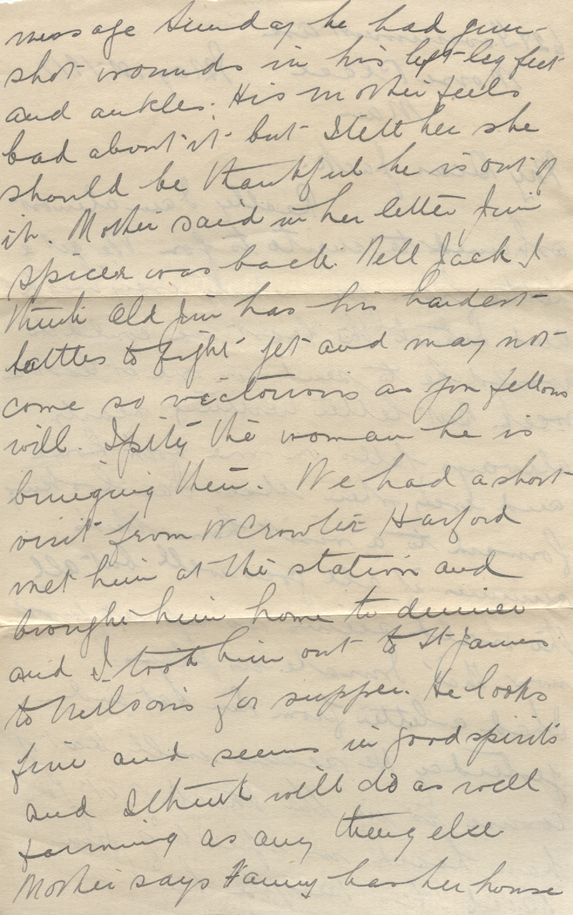 message Sunday he had gun-
shot wounds in his left leg feet
and ankles. His mother feels
bad about it but I tell her she
should be thankful he is out of
it. Mother said in her letter Jim
Spicer was back. Tell Jack I
think Old Jim has his hardest
battles to fight yet and may not
come so victorious as you fellows
will. I pity the woman he is
bringing then. We had a short
visit from W Harford
met him at the station and
brought him home to dinner
and I took him out to St James
to Neilson's for supper. He looks
fine and seems in good spirits
and I think will do as well
farming as any thing else
Mother says Fanny has her house